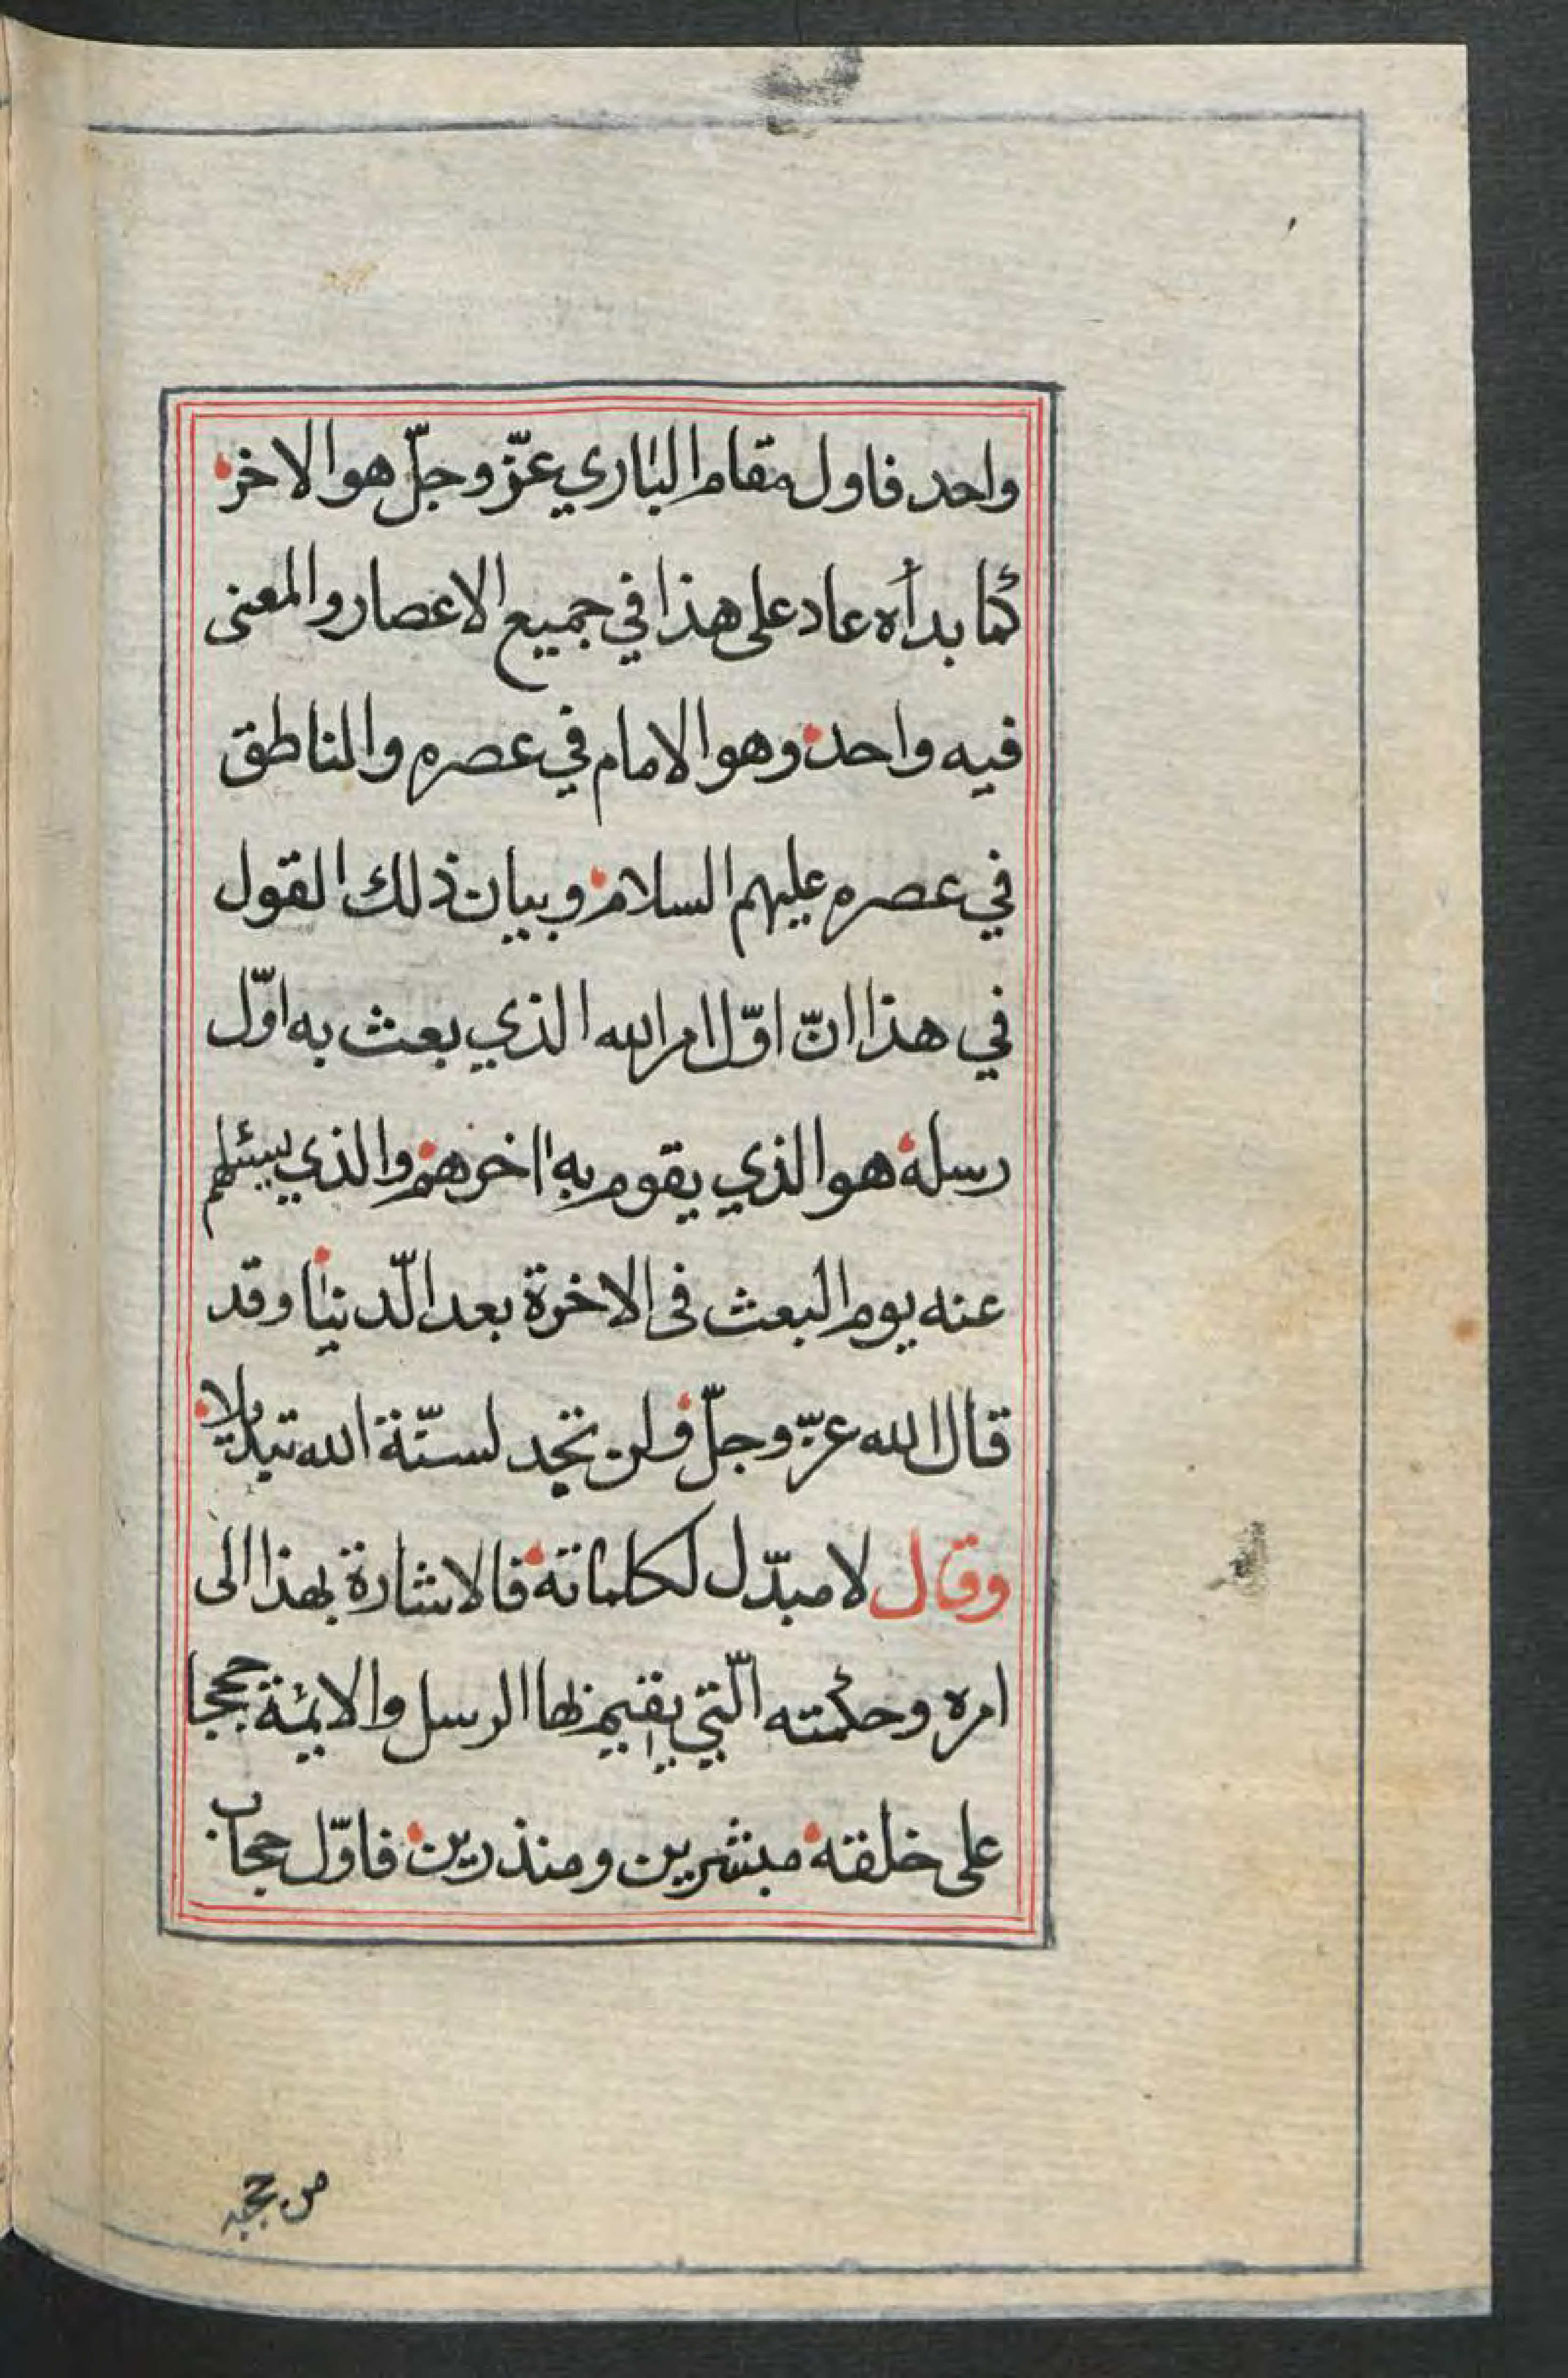 واحد فاول مقام الباري عزّ وجلّ هو الاخر
كما بدأه عاد على هذا في جميع الاعصار والمعنى
فيه واحد وهو الامام في عصره والناطق
في عصره عليهم السلام وبيان ذلك القول
في هذا انّ اوّل امر الله الذي بعث به اوّل
رسله هو الذي يقوم به اخرهم والذي يسئلهم
عنه يوم البعث فى الاخرة بعد الّدنيا وقد
قال الله عزّ وجلّ فلن تجد لسنّة الله تبديلا
وقال لا مبدّل لكلماته فالاشارة بهذا الى
امره وحكمته الّتي يقيم بها الرسل والايمّة حججا
على خلقه مبشرين ومنذرين فاوّل حجاب
من حجبه